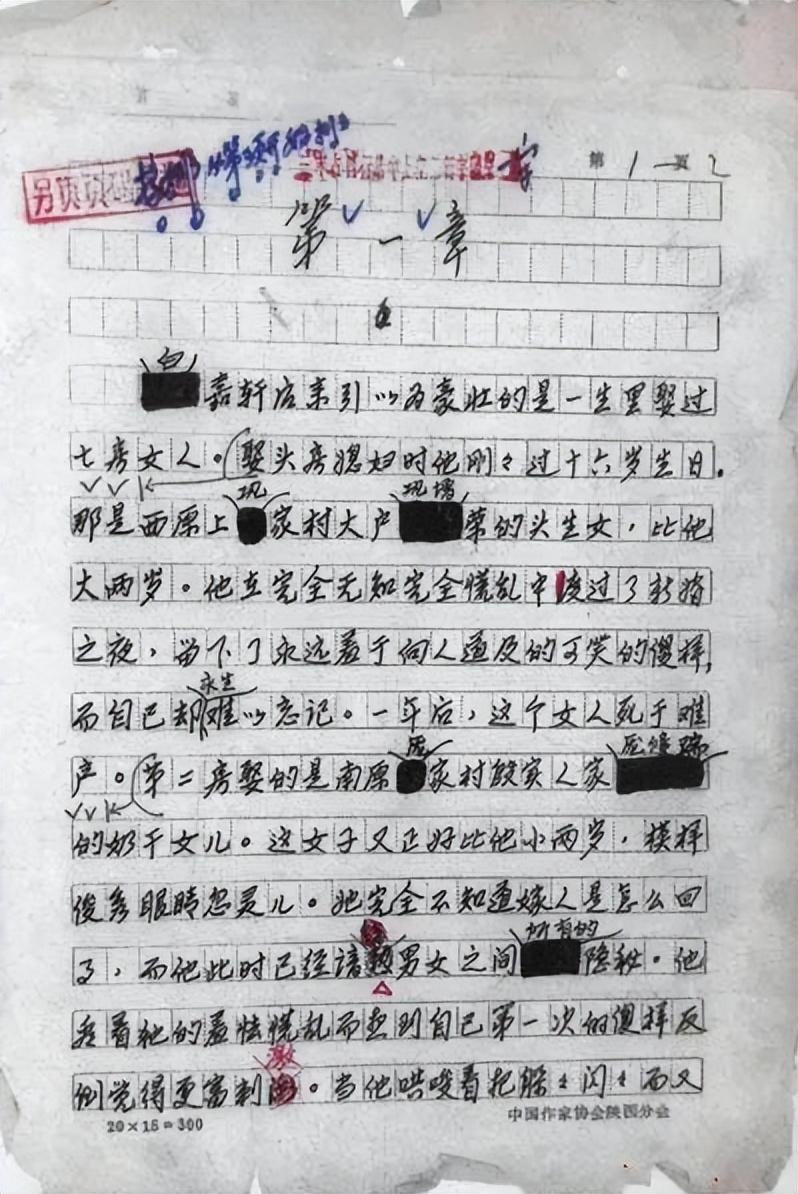 第1页 2
另页页码
第一章
白
嘉轩后来引以为豪壮的是一生里娶过
七房女人。娶头房媳妇时他刚々过十六岁生日。
巩 巩增
那是西原上家村大户荣的头生女，比他
大两岁。他在完全无知完全慌乱中度过了新婚
之夜，留下了永远羞于向人道及的可笑的傻样，
永生
而自己却难以忘记。一年后，这个女人死于难
庞 庞修瑞
产。第二房娶的是南原家村殷实人家
的奶干女儿。这女子又正好比他小两岁，模样
俊秀眼睛忽灵儿。她完全不知道嫁人是怎么回
所有的
事，而他此时已经谙男女之间隐秘。他
看着她的羞怯慌乱而想到自己第一次的傻样反
激
倒觉得更富刺。当他哄唆着把躲々闪々而又
20×15=300
中国作家协会陕西分会